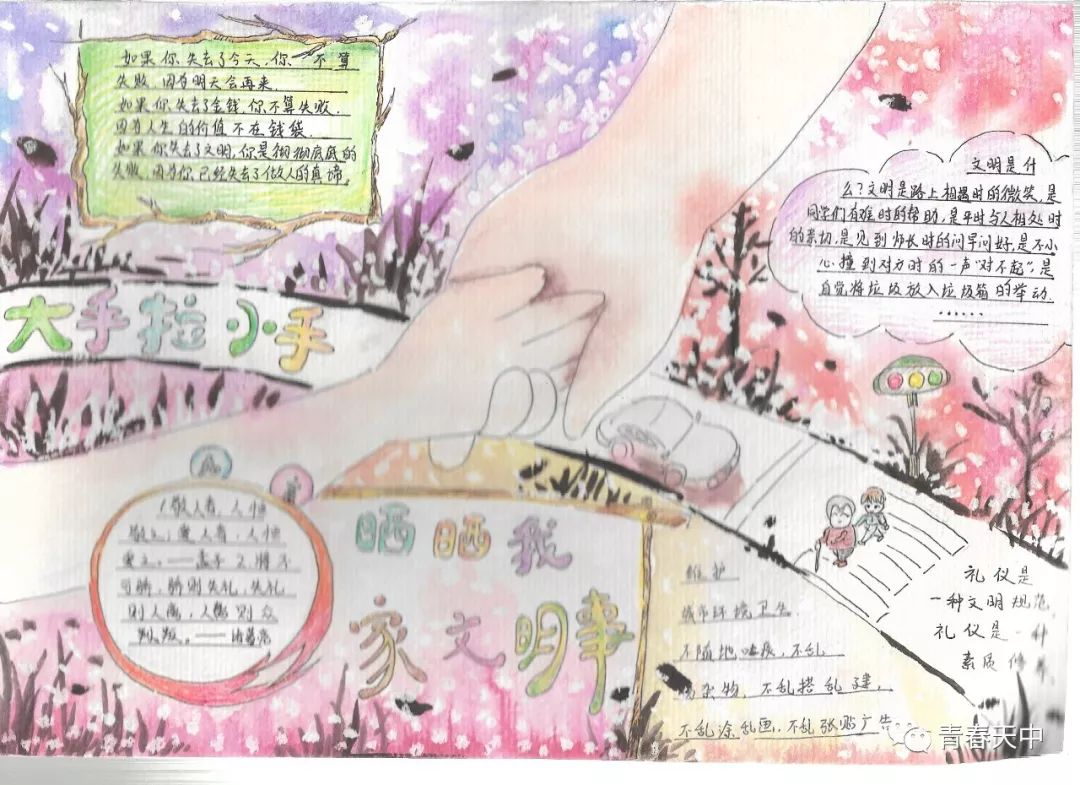 如果你失去了今天,你 不算
失败,因为明天会再来.
如果你失去了金钱,你不算失败.
因为人生的价值不在钱袋.
如果你失去了文明,你是彻彻底底的
失败,因为你已经失去了做人的真谛。
文明是什
么?文明是路上相遇时的微笑,是
同学们有难时的帮助,是平时与人相处时
的亲切,是见到师长时的问早问好,是不小
心撞到对方时的一声“对不起”,是
自觉将垃圾放入垃圾箱的举动.
......
大手拉小手
1敬人者,人恒
敬之,爱人者,人恒
爱之。——孟子 2.将不
可骄,骄则失礼,失礼
则人离,人离则众
叛。——诸葛亮
晒晒我
家文明事
维护
城市环境卫生
不随地吐痰,不乱
杂物,不乱搭乱建,
不乱涂乱画,不乱张贴广告
礼仪是
一种文明规范,
礼仪是一种
素质修养.
青春天中